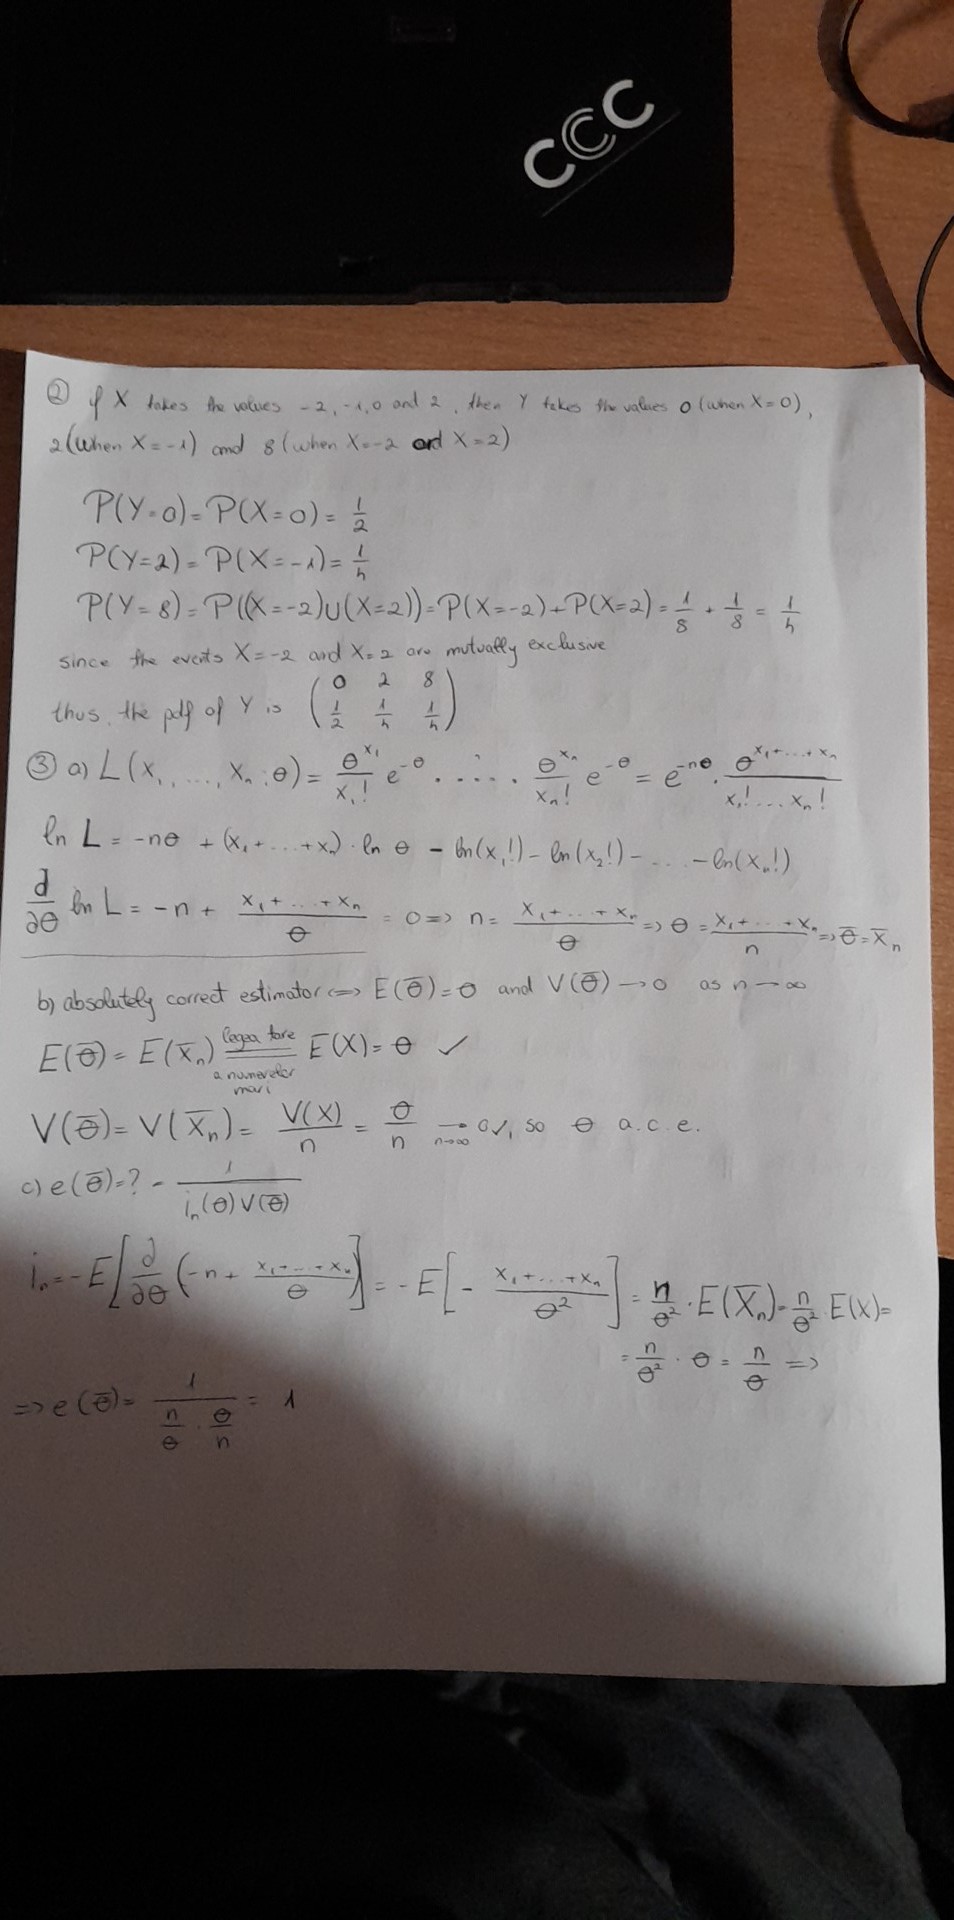 CCC
② if X takes the values -2, -1, 0 and 2, then Y takes the values 0 (when X=0),
2 (when X=-1) and 8 (when X=-2 and X=2)
P(Y=0) = P(X=0) = 1/2
P(Y=2) = P(X=-1) = 1/4
P(Y=8) = P((X=-2)∪(X=2)) = P(X=-2) + P(X=2) = 1/8 + 1/8 = 1/4
since the events X=-2 and X=2 are mutually exclusive
thus, the pdf of Y is (0 2 8 / 1/2 1/4 1/4)
③ a) L(x₁, ..., xₙ; θ) = θ^x₁/x₁! e^-θ · ... · θ^xₙ/xₙ! e^-θ = e^-nθ · θ^(x₁+...+xₙ)/(x₁! ... xₙ!)
ln L = -nθ + (x₁+...+xₙ) · ln θ - ln(x₁!) - ln(x₂!) - ... - ln(xₙ!)
∂/∂θ ln L = -n + (x₁+...+xₙ)/θ = 0 => n = (x₁+...+xₙ)/θ => θ = (x₁+...+xₙ)/n => θ̅ = X̅ₙ
b) absolutely correct estimator <=> E(θ̅) = θ and V(θ̅) → 0 as n → ∞
E(θ̅) = E(X̅ₙ) = legea tare a numerelor mari E(X) = θ ✓
V(θ̅) = V(X̅ₙ) = V(X)/n = θ/n → n→∞ 0 ✓, so θ a.c.e.
c) e(θ̅) = ? = 1/(iₙ(θ) V(θ̅))
iₙ = -E[∂/∂θ (-n + (x₁+...+xₙ)/θ)] = -E[-(x₁+...+xₙ)/θ²] = n/θ² · E(X̅ₙ) = n/θ² · E(X) =
= n/θ² · θ = n/θ =>
=> e(θ̅) = 1/(n/θ · θ/n) = 1